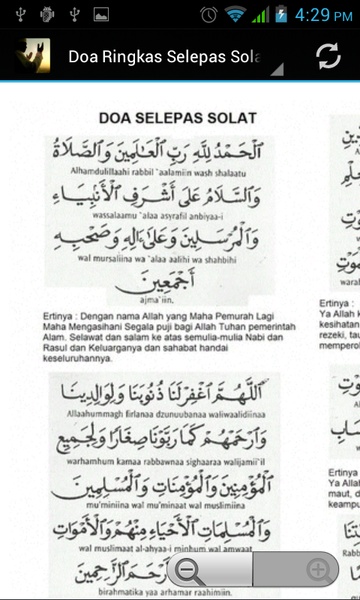 4:29 PM
Doa Ringkas Selepas Sola
DOA SELEPAS SOLAT
اَلْحَمْدُ لِلّٰهِ رَبِّ الْعَالَمِيْنَ وَالصَّلَاةُ
Alhamdulillaahi rabbil `aalamiin wash shalaatu
وَالسَّلَامُ عَلَى أَشْرَفِ الْأَنْبِيَاءِ
wassalaamu `alaa asyrafil anbiyaa-i
وَالْمُرْسَلِيْنَ وَعَلَى اٰلِهِ وَصَحْبِهِ
wal mursaliina wa `alaa aalihi wa shahbihi
أَجْمَعِيْنَ
ajma`iin.
Ertinya : Dengan nama Allah yang Maha Pemurah Lagi
Maha Mengasihani Segala puji bagi Allah Tuhan pemerintah
Alam. Selawat dan salam ke atas semulia-mulia Nabi dan
Rasul dan Keluarganya dan sahabat handai
keseluruhannya.
اَللّٰهُمَّ اغْفِرْلَنَا ذُنُوْبَنَا وَلِوَالِدِيْنَا
Allaahummagh firlanaa dzunuubanaa waliwaalidiinaa
وَارْحَمْهُمْ كَمَا رَبَّوْنَا صِغَارًا وَلِجَمِيْعِ
warhamhum kamaa rabbawnaa sighaaraa walijamii'il
الْمُؤْمِنِيْنَ وَالْمُؤْمِنَاتِ وَالْمُسْلِمِيْنَ
mu'miniina wal mu'minaat wal muslimiina
وَالْمُسْلِمَاتِ الْأَحْيَاءِ مِنْهُمْ وَالْأَمْوَاتِ
wal muslimaat al-ahyaa-i minhum wal amwaat
أَرْحَمَ الرَّاحِمِيْنَ
birahmatika yaa arhamar raahimiin.
Ertinya :
Ya Allah
kesihatan
rezeki, tau
memperol
Ertinya
Ya Alla
maut, d
keampu